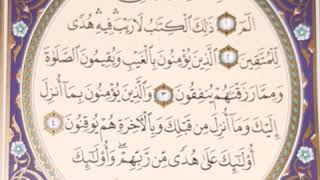 الٓمٓ ١ ذَٰلِكَ ٱلْكِتَٰبُ لَا رَيْبَ ۛ فِيهِ ۛ هُدًى
لِّلْمُتَّقِينَ ٢ ٱلَّذِينَ يُؤْمِنُونَ بِٱلْغَيْبِ وَيُقِيمُونَ ٱلصَّلَوٰةَ
وَمِمَّا رَزَقْنَٰهُمْ يُنفِقُونَ ٣ وَٱلَّذِينَ يُؤْمِنُونَ بِمَآ أُنزِلَ
إِلَيْكَ وَمَآ أُنزِلَ مِن قَبْلِكَ وَبِٱلْأٓخِرَةِ هُمْ يُوقِنُونَ ٤
أُو۟لَٰٓئِكَ عَلَىٰ هُدًى مِّن رَّبِّهِمْ ۖ وَأُو۟لَٰٓئِكَ